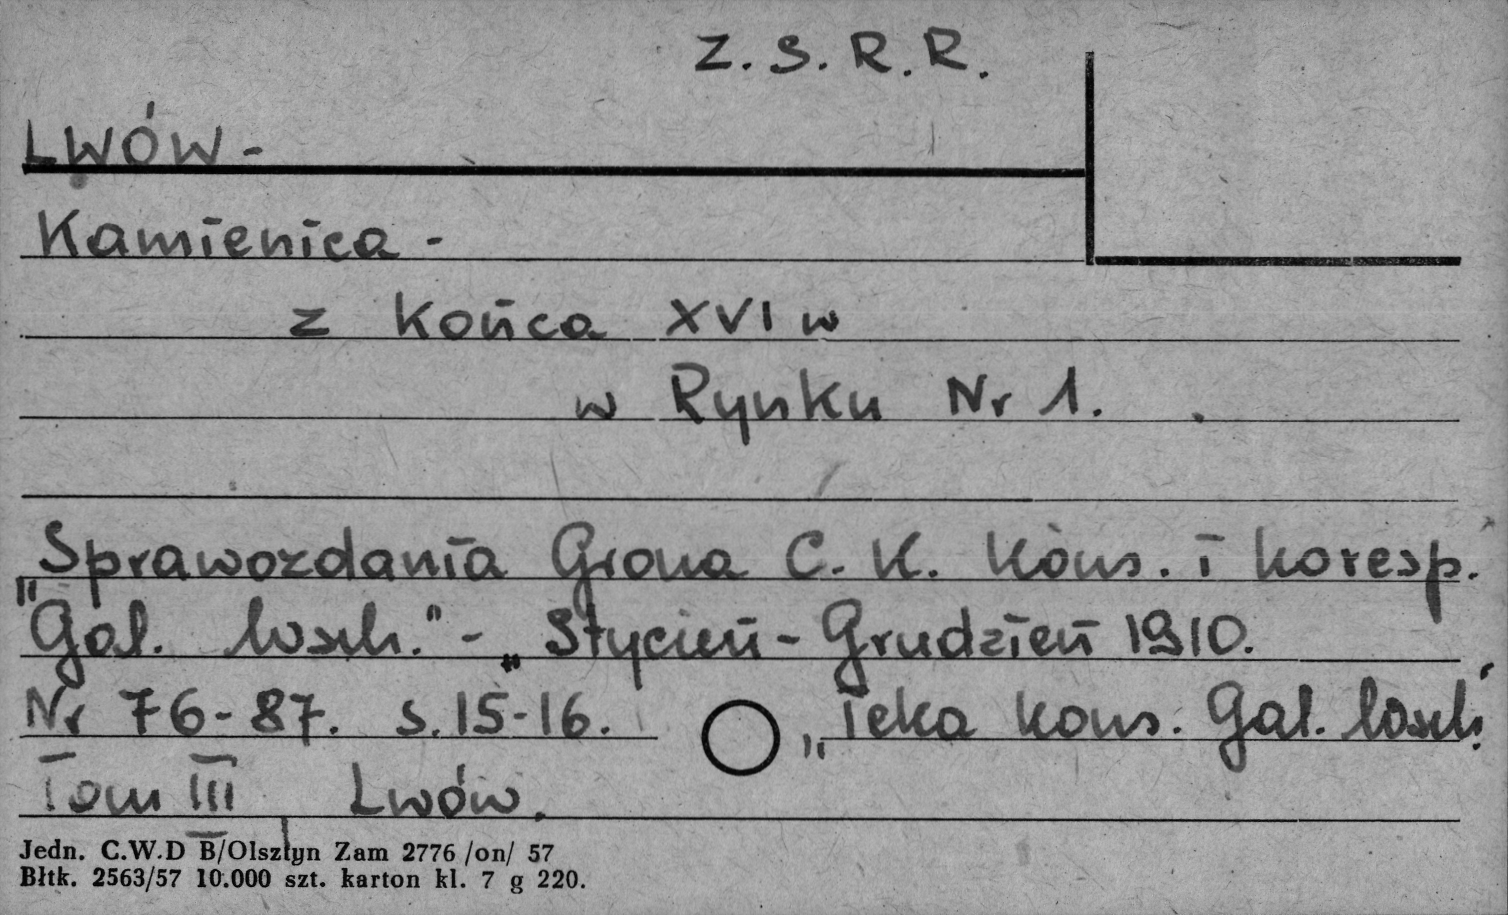 Z. S. R. R.
LWÓW -
Kamienica -
z końca XVI w
w Rynku Nr 1.
„Sprawozdania Grona C. K. Kons. i koresp.
Gal. wsch." - „Styczeń - Grudzień 1910.
Nr 76-87. s. 15-16. „Teka kons. Gal. wsch."
Tom III Lwów.
Jedn. C.W.D B/Olsztyn Zam 2776 /on/ 57
Błtk. 2563/57 10.000 szt. karton kl. 7 g 220.